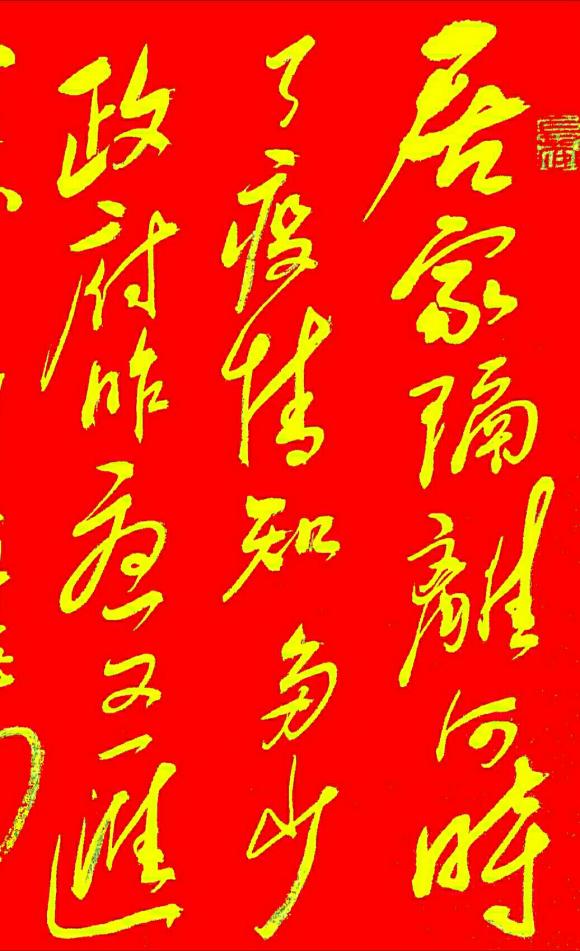 居家隔離何時
了疫情知多少
政府昨夜又匯